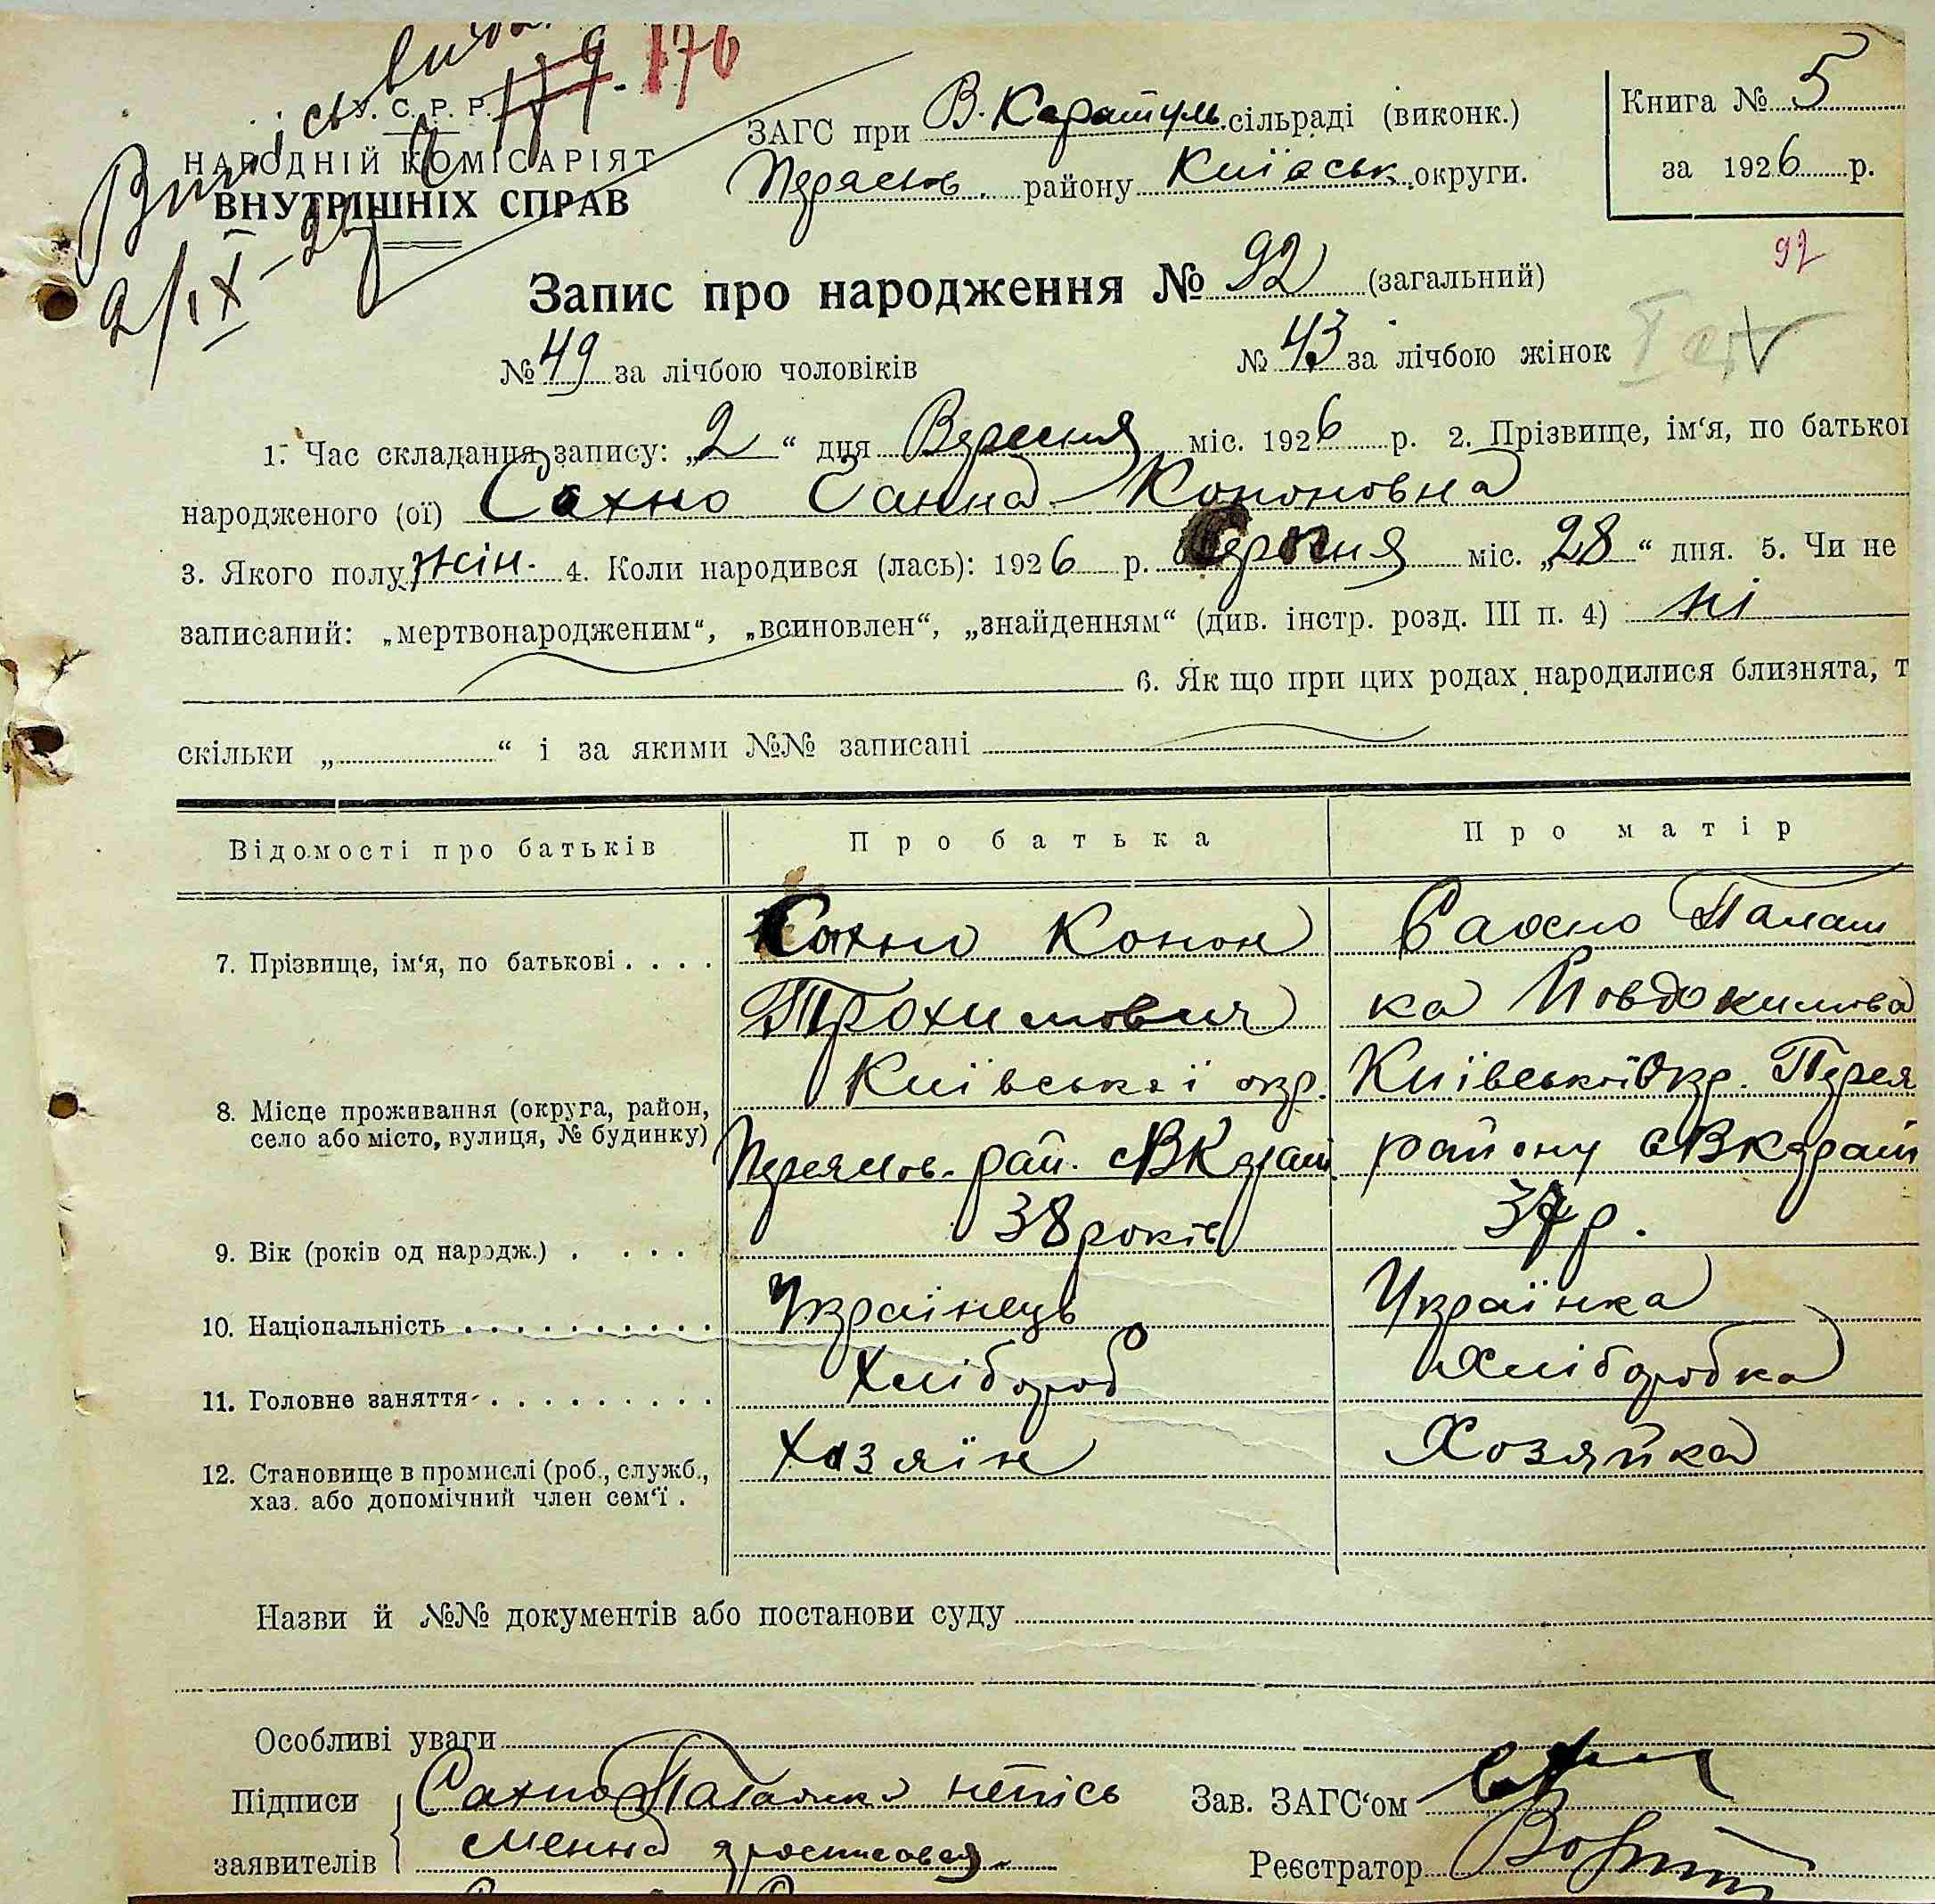 179. 176
У. С. Р. Р.
НАРОДНІЙ КОМІСАРІЯТ
ВНУТРІШНІХ СПРАВ
2/IX-
ЗАГС при В. Каратуль сільраді (виконк.)
Переяслов. району Київськ. округи.
Книга № 5
за 1926 р.
92
Запис про народження № 92 (загальний)
№ 49 за лічбою чоловіків № 43 за лічбою жінок
1. Час складання запису: „2“ дня Вересня міс. 1926 р. 2. Прізвище, ім‘я, по батькові
народженого (ої) Сахно Ганна Кононовна
3. Якого полу жін. 4. Коли народився (лась): 1926 р. Серпня міс. „28“ дня. 5. Чи не
записаний: „мертвонародженим“, „всиновлен“, „знайденням“ (див. інстр. розд. III п. 4) ні
6. Як що при цих родах народилися близнята, т
скільки „ “ і за якими №№ записані
Відомості про батьків Про батька Про матір
7. Прізвище, ім‘я, по батькові . . . . Сахно Конон Сахно Палаш
Трохимович ка Йовдокимова
8. Місце проживання (округа, район, Київської окр. Київської Окр. Перея
село або місто, вулиця, № будинку) Переяслов. рай. с В Карат району с В Карат
9. Вік (років од народж.) . . . . 38 років 37 р.
10. Національність . . . . . . . . . . Українець Українка
11. Головне заняття . . . . . . . . . Хлібороб Хлібородка
12. Становище в промислі (роб., служб., Хазяїн Хозяйка
хаз. або допомічний член сем‘ї .
Назви й №№ документів або постанови суду
Особливі уваги
Підписи Сахно Палашка непісь Зав. ЗАГС‘ом
заявителів менна Реєстратор